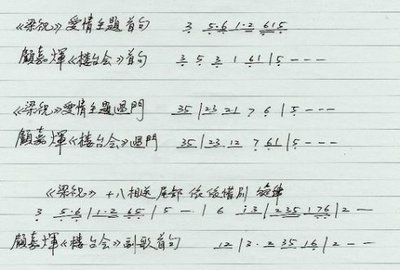 《梁祝》爱情主题首句 3 5·6 1·2 615
顧嘉煇《楼台会》首句 3 5 3 1 61 | 5 - - -
《梁祝》爱情主题過門 35 | 23 21 7 6 | 5 - - -
顧嘉煇《楼台会》過門 35 | 23·12 7 61 | 5 - - -
《梁祝》十八相送尾部 依依惜别 旋律
3 5·6 | 1·2 65 | 5 - - | 6 i·3 | 235 176 | 2 - -
顧嘉煇《楼台会》副歌首句 12 | 3·2 35 16 | 2 - -